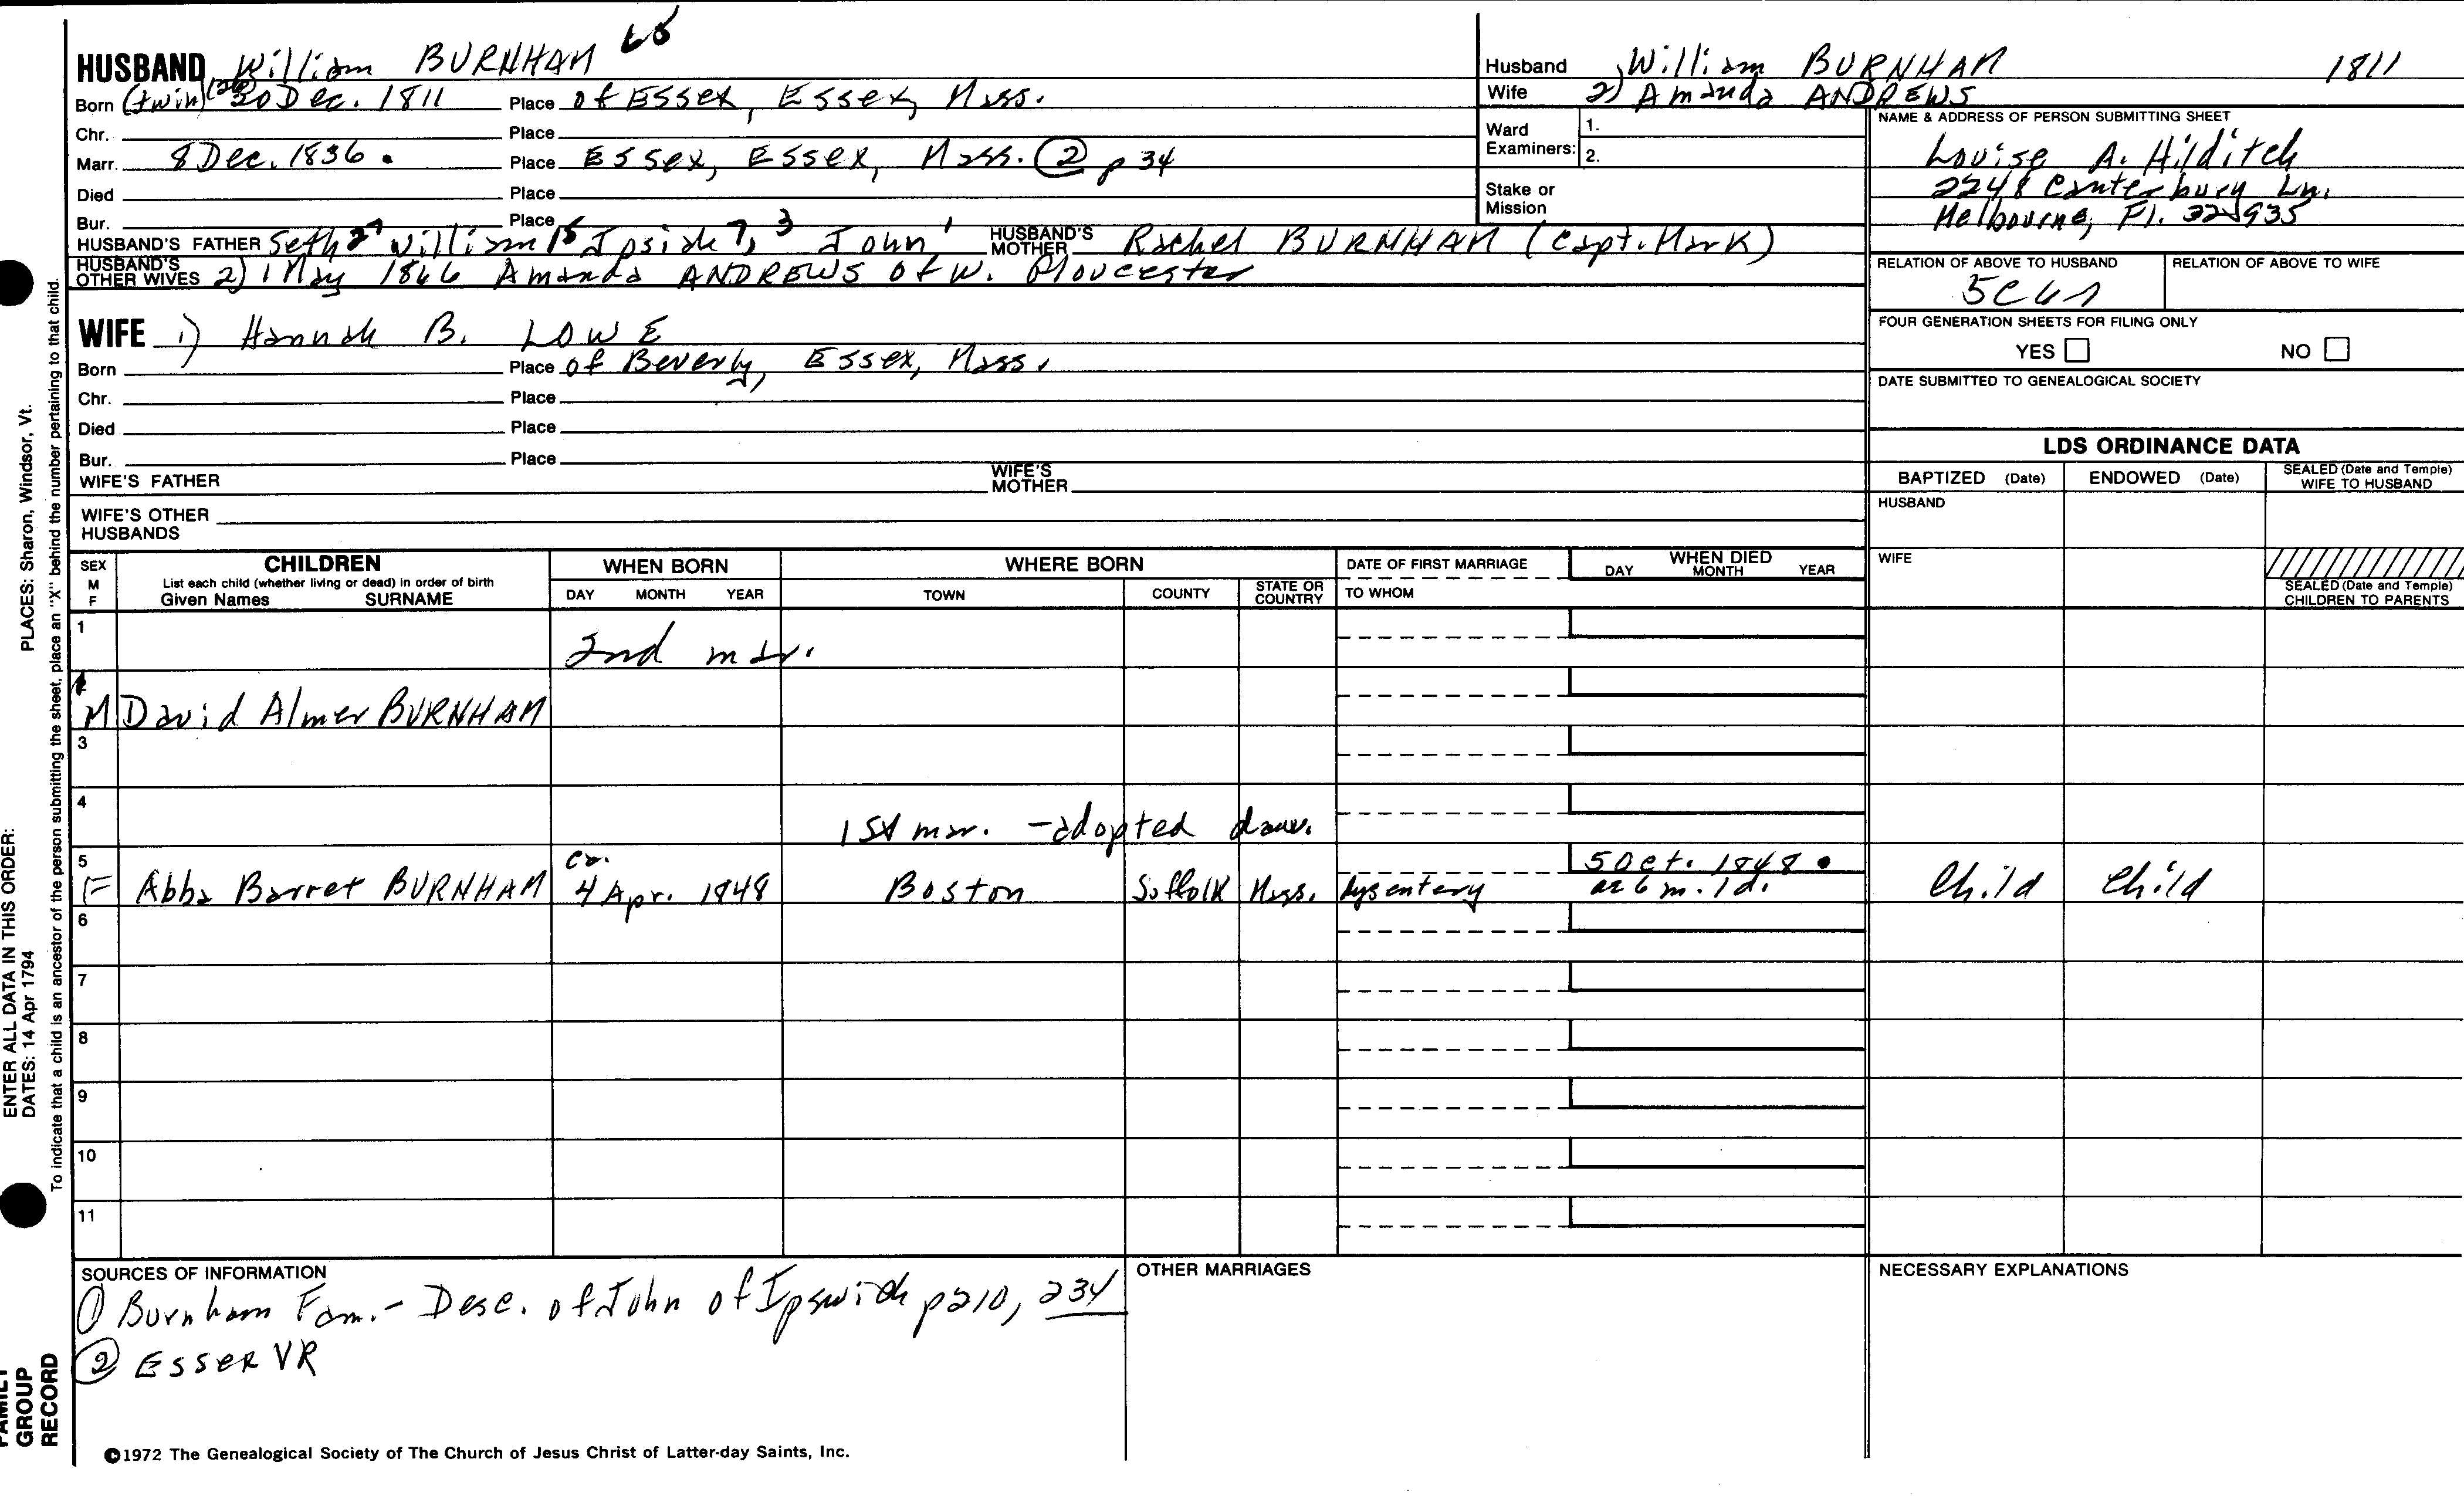 HUSBAND William BURNHAM
Born (twin) (26) 30 Dec. 1811 Place of Essex, Essex, Mass.
Chr. Place
Marr. 8 Dec. 1836. Place Essex, Essex, Mass. (2) p 34
Died Place
Bur. Place
HUSBAND'S FATHER Seth William John HUSBAND'S MOTHER Rachel BURNHAM (Capt. Mark)
HUSBAND'S OTHER WIVES 2) 1 May 1866 Amanda ANDREWS of W. Gloucester
WIFE 1) Hannah B. LOWE
Born Place of Beverly, Essex, Mass.
Chr. Place
Died Place
Bur. Place
WIFE'S FATHER WIFE'S MOTHER
WIFE'S OTHER HUSBANDS
Husband William BURNHAM 1811
Wife 2) Amanda ANDREWS
Ward Examiners: 1.
2.
Stake or Mission
NAME & ADDRESS OF PERSON SUBMITTING SHEET
Louise A. Hilditch
2248 Canterbury Ln.
Melbourne, Fl. 32935
RELATION OF ABOVE TO HUSBAND RELATION OF ABOVE TO WIFE
FOUR GENERATION SHEETS FOR FILING ONLY
YES NO
DATE SUBMITTED TO GENEALOGICAL SOCIETY
LDS ORDINANCE DATA
BAPTIZED (Date) ENDOWED (Date) SEALED (Date and Temple) WIFE TO HUSBAND
HUSBAND
WIFE
SEALED (Date and Temple) CHILDREN TO PARENTS
SEX M F
CHILDREN
List each child (whether living or dead) in order of birth
Given Names SURNAME
WHEN BORN
DAY MONTH YEAR
WHERE BORN
TOWN COUNTY STATE OR COUNTRY
DATE OF FIRST MARRIAGE
TO WHOM
WHEN DIED
DAY MONTH YEAR
1
2nd mar.
2
M David Almer BURNHAM
3
4
1st mar. - adopted dau.
5 ca. 5 Oct. 1848.
F Abba Barret BURNHAM 4 Apr. 1848 Boston Suffolk Mass. dysentery ae 6 m. 1 d. Child Child
6
7
8
9
10
11
SOURCES OF INFORMATION
(1) Burnham Fam. - Desc. of John of Ipswich p210, 234
(2) Essex VR
OTHER MARRIAGES
NECESSARY EXPLANATIONS
©1972 The Genealogical Society of The Church of Jesus Christ of Latter-day Saints, Inc.
PLACES: Sharon, Windsor, Vt.
ENTER ALL DATA IN THIS ORDER:
DATES: 14 Apr 1794
To indicate that a child is an ancestor of the person submitting the sheet, place an "X" behind the number pertaining to that child.
FAMILY
GROUP
RECORD